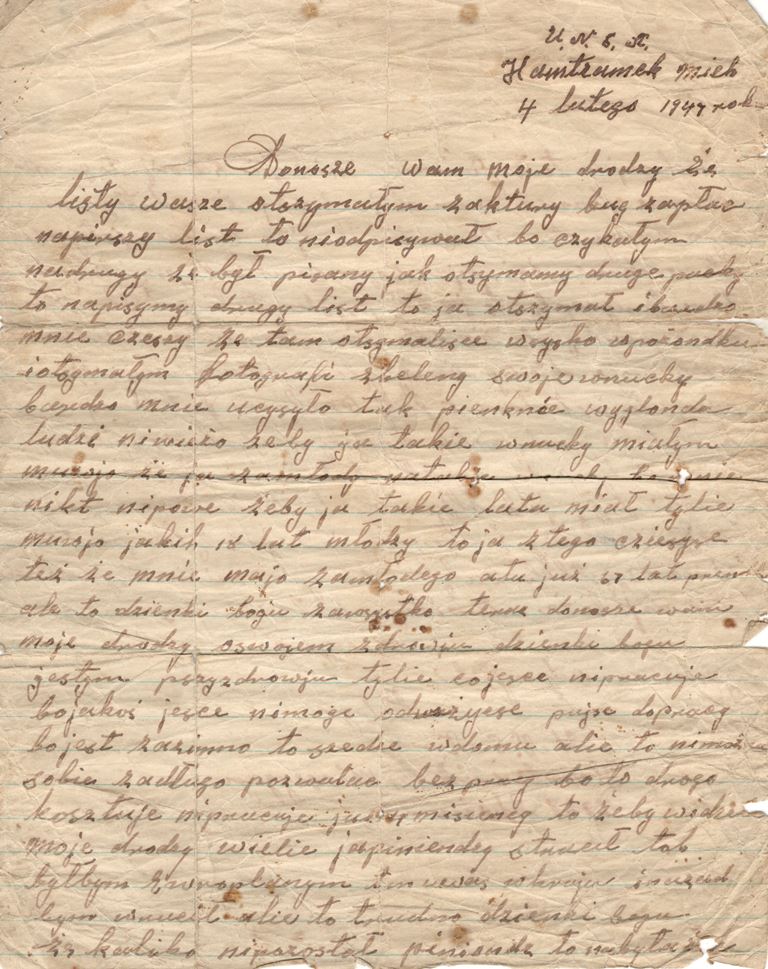 U. N. S. A.
Hamtramek Mich
4 lutego 1947 rok
Donosze wam moje drodzy że
listy wasze otszymałym zaktury bug zapłac
napirszy list to niodpisywał bo czykałym
nadrugy że był pisany jak otsymamy druge packy
to napisymy drugy list to ja otszymał ibardzo
mnie czeszy że tam otsymalisce wsysko wporondku
iotsymałym fotografi zheleny swoje wnucky
bardzo mnie ucysyło tak pienknie wyglonda
ludzi niwiežo żeby ja takie wnucky miałym
muwjo że ja zamłody
nikt nipowe żeby ja takie lata miał tylie
muwjo jakih 18 lat młodzy to ja ztego cziesyse
też że mnie majo zamłodego ata już 67 lat
ale to dzienki bogu zawsystko teraz donosze wam
moje drodzy oswojem zdrowju dzienki bogu
jestym pszyzdrowju tylie cojesce nipracuje
bojakoś jesce nimoge odważyese pujsc dopracy
bojest zazimno to szedze wdomu alie to nimożna
sobie zadługo pozwalac bez pracy bo to drogo
kosztuje nipracuje już misiency to żeby widzice
moje drodzy wielie japiniendzy stracił tob
byłbym zwrople tmuwas wkraju inazad
bym wrucił alie to trudno dzienki bogu
że kaliko nipozostał piniendz to nabyła